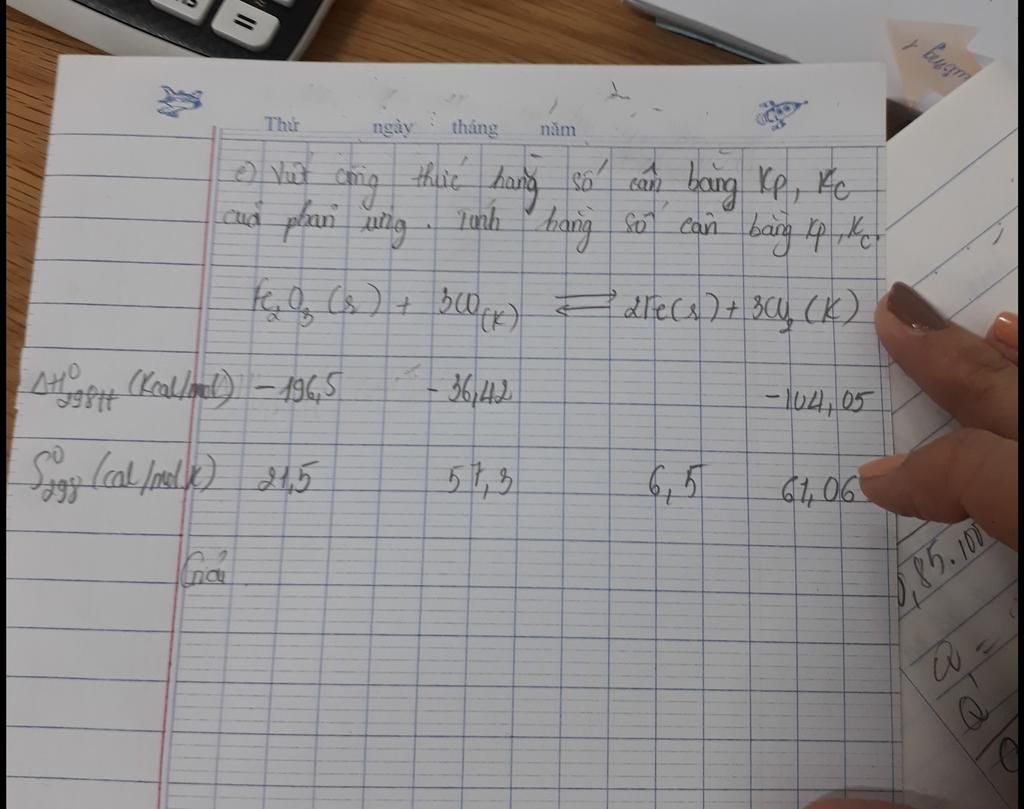 =
Thứ ngày tháng năm
c) Viết công thức hằng số cân bằng Kp, Kc
của phản ứng. Tính hằng số cân bằng Kp, Kc.
Fe2O3 (r) + 3CO(K) ⇌ 2Fe(r) + 3CO2 (K)
ΔH⁰298tt (Kcal/mol) -196,5 -36,42 -104,05
S⁰298 (cal/mol.K) 21,5 57,3 6,5 61,06
Giải
0,85.100
Q =